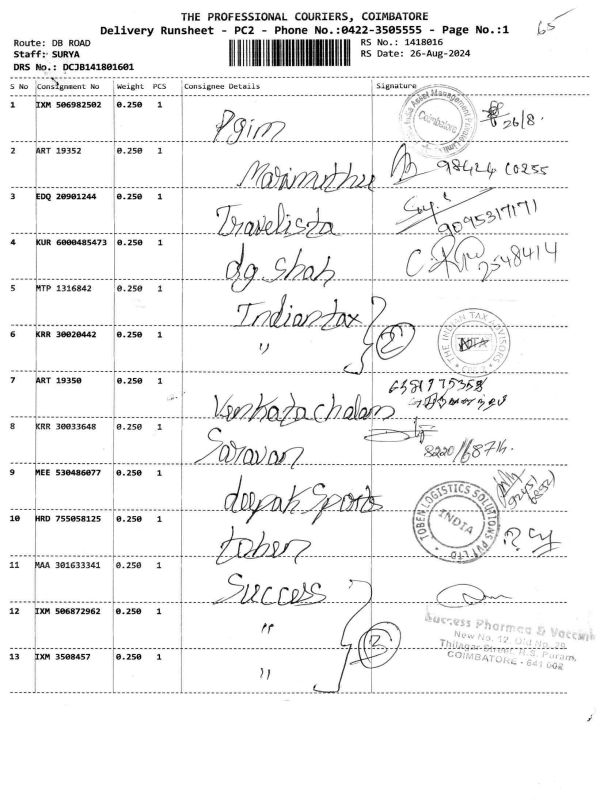 THE PROFESSIONAL COURIERS, COIMBATORE
65
Delivery Runsheet - PC2 - Phone No.:0422-3505555 - Page No.:1
Route: DB ROAD
RS No.: 1418016
Staff: SURYA
RS Date: 26-Aug-2024
DRS No.: DCJB141801601
S No Consignment No Weight PCS Consignee Details Signature
1 IXM 506982502 0.250 1 Pgim Coimbatore 26/8.
2 ART 19352 0.250 1 Marimuthu 98424 60255
3 EDQ 20901244 0.250 1 Travelista 9095317171
4 KUR 6000485473 0.250 1 dg shah 2548414
5 MTP 1316842 0.250 1 Indian tax
6 KRR 30020442 0.250 1 " 2 THE INDIAN TAX ADVISORS
7 ART 19350 0.250 1 Venkatachalam
8 KRR 30033648 0.250 1 Saravan
9 MEE 530486077 0.250 1 deepak Sports
10 HRD 755058125 0.250 1 toben TOBEN LOGISTICS SOLUTIONS PVT LTD INDIA
11 MAA 301633341 0.250 1 Success
12 IXM 506872962 0.250 1 " 3
Success Pharmaa & Vaccin
New No. 12, Old No. 29
Thilagar Street, R.S. Puram,
COIMBATORE - 641 002
13 IXM 3508457 0.250 1 "